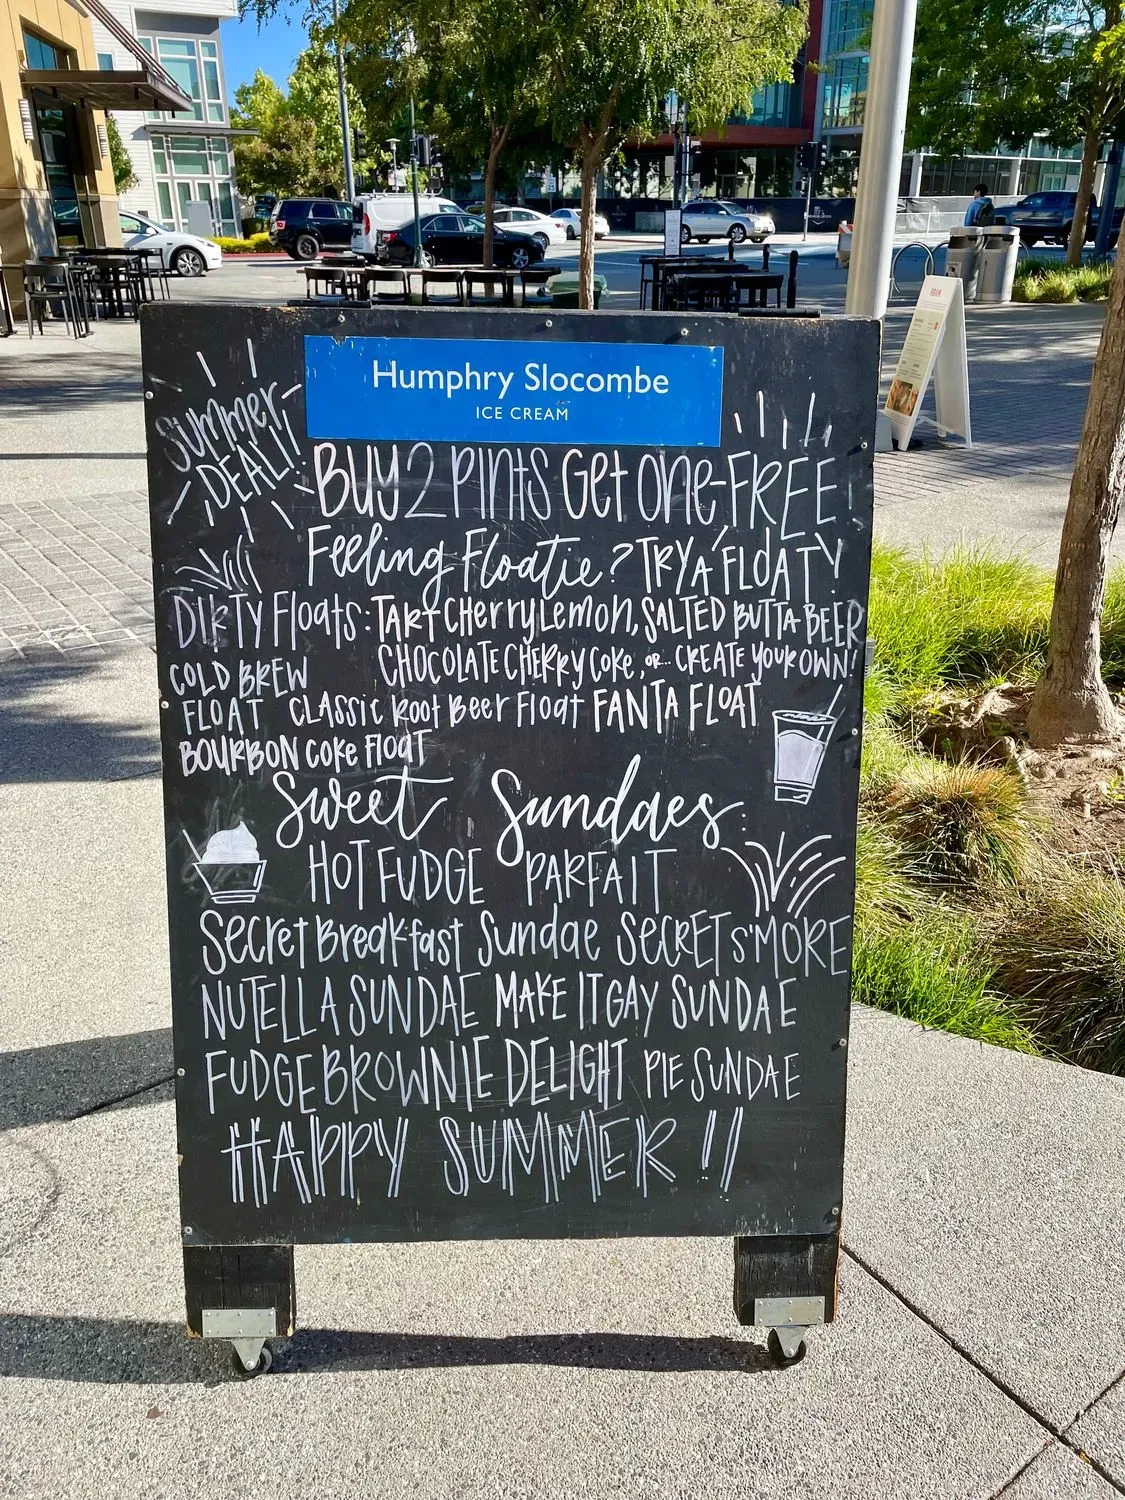 Humphry Slocombe
ICE CREAM
Summer
DEAL!!
BUY 2 PINTS Get one-FREE
Feeling Floatie? TRY A FLOATY!
DIRTY Floats: TART CHerry Lemon, SALTED BUTTA BEER
CHOCOLATE CHERRY COKE, or... CREATE YOUR OWN!
COLD BREW
FLOAT CLASSIC Root Beer Float FANTA FLOAT
BOURBON Coke FLOAT
Sweet Sundaes:
HOT FUDGE PARFAIT
Secret Breakfast Sundae SECRET S'MORE
NUTELLA SUNDAE MAKE IT GAY SUNDAE
FUDGE BROWNIE DELIGHT PIE SUNDAE
HAPPY SUMMER!!